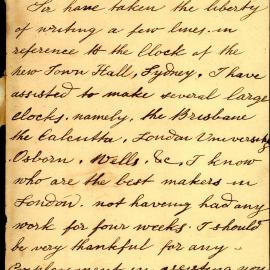 Sir have taken the liberty
of writing a few lines in
reference to the Clock of the
new Town Hall, Sydney, I have
assisted to make several large
clocks, namely, the Brisbane
the Calcutta, London University
Osborn, Wells, &c, I know
who are the best makers in
London. not haveing had any
work for four weeks. I should
be very thankful for any -
Employment in assisting you